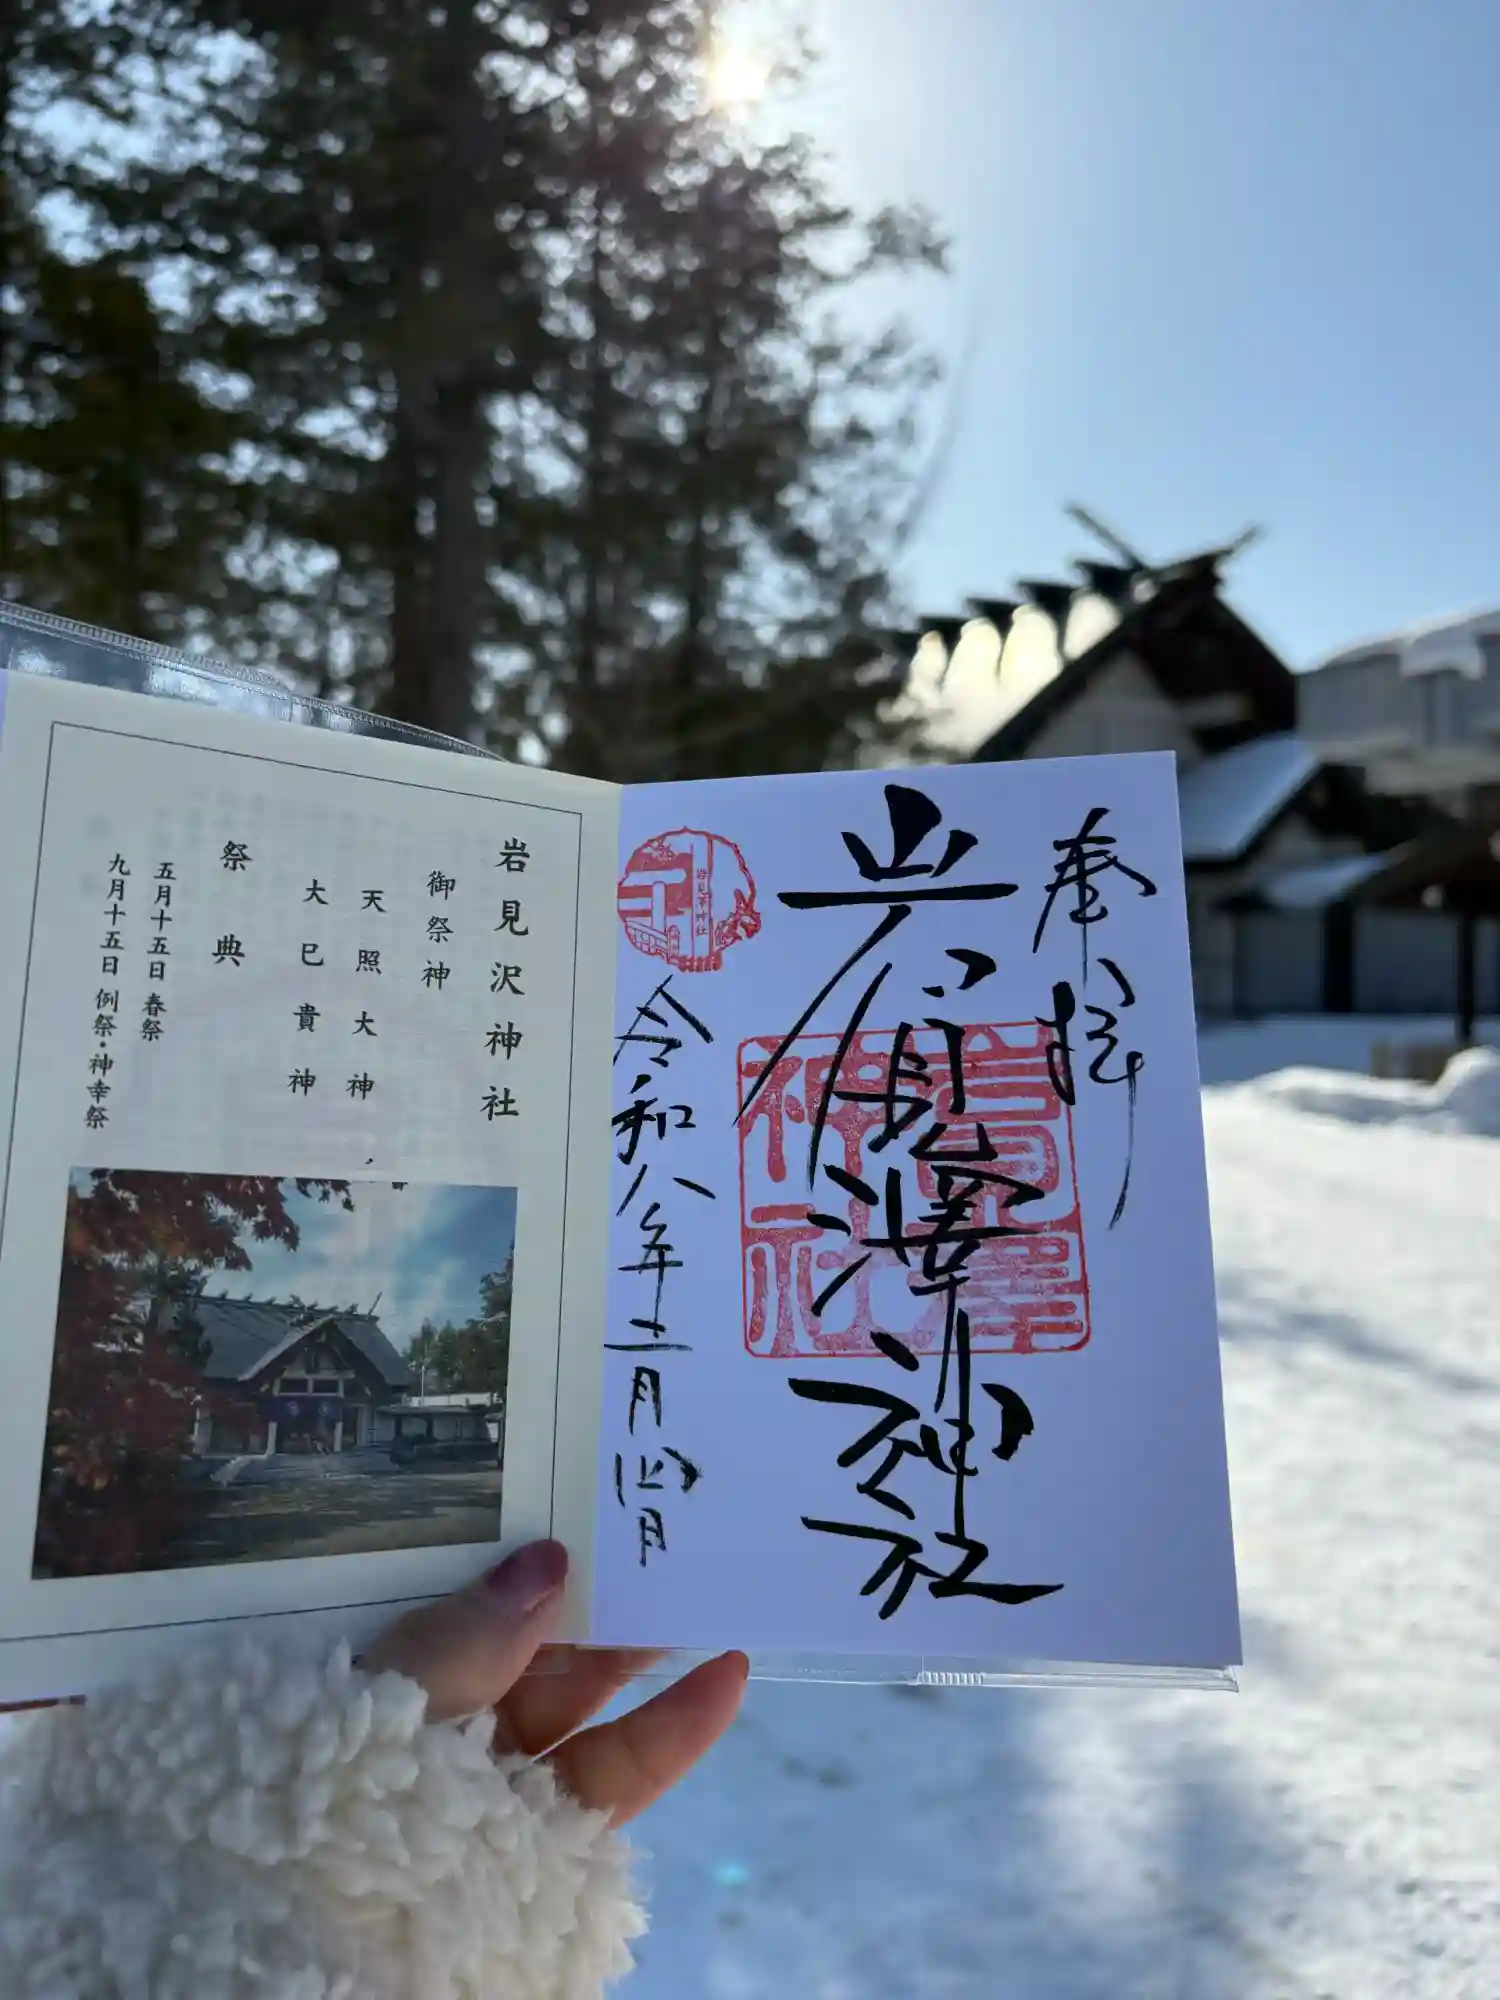 奉拝
岩見澤神社
岩見澤神社
岩見澤神社
令和八年二月四日
岩見沢神社
御祭神
天照大神
大巳貴神
祭典
五月十五日 春祭
九月十五日 例祭・神幸祭